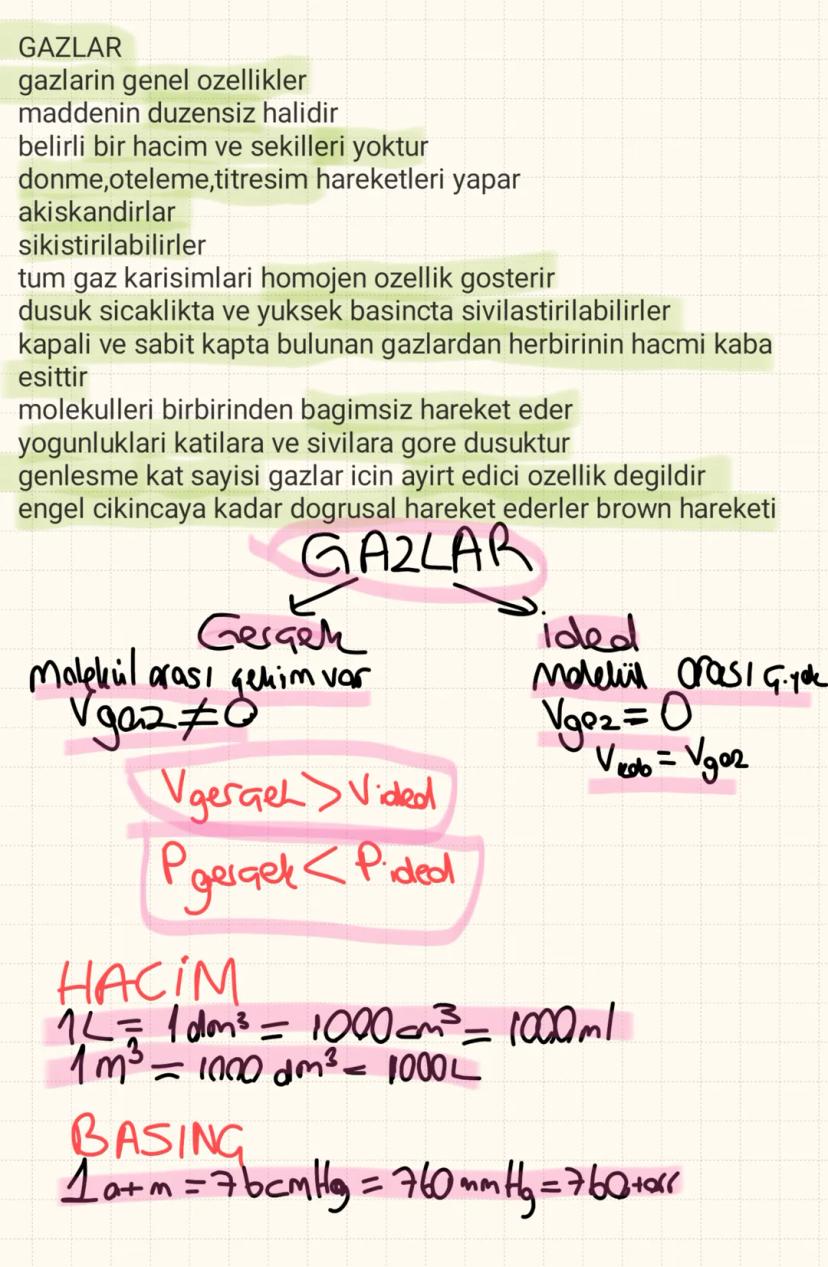 GAZLAR
gazlarin genel ozellikler
maddenin duzensiz halidir
belirli bir hacim ve sekilleri yoktur
donme,oteleme,titresim hareketleri yapar
akiskandirlar
sikistirilabilirler
tum gaz karisimlari homojen ozellik gosterir
dusuk sicaklikta ve yuksek basincta sivilastirilabilirler
kapali ve sabit kapta bulunan gazlardan herbirinin hacmi kaba
esittir
molekulleri birbirinden bagimsiz hareket eder
yogunluklari katilara ve sivilara gore dusuktur
genlesme kat sayisi gazlar icin ayirt edici ozellik degildir
engel cikincaya kadar dogrusal hareket ederler brown hareketi
GAZLAR
Gerçek
ideal
Molekül arası çekim var
Molekül arası ç.yok
Vgaz ≠ 0
Vgaz = 0
Vkab = Vgaz
Vgerçek > Videal
Pgerçek < Pideal
HACİM
1L = 1dm³ = 1000cm³ = 1000ml
1m³ = 1000 dm³ = 1000L
BASINÇ
1 atm = 76cmHg = 760mmHg = 760torr